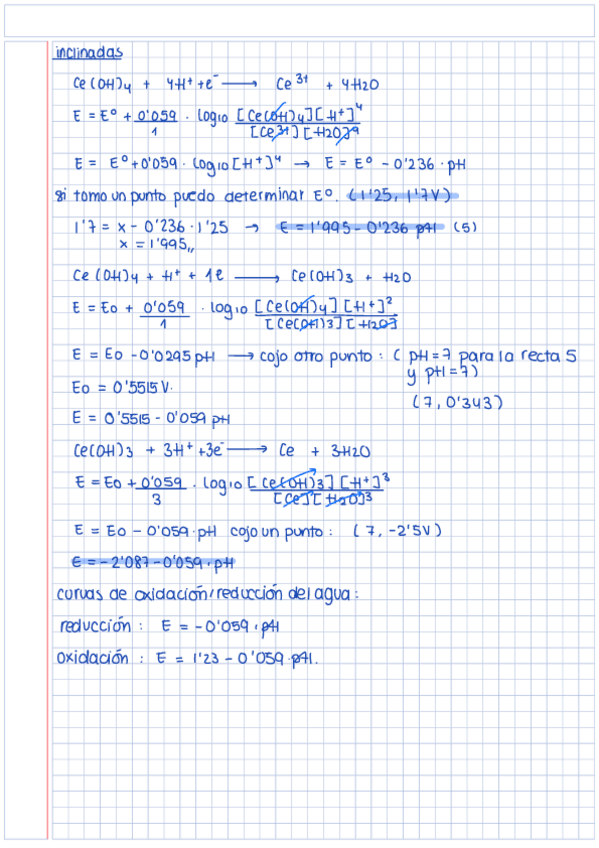 inclinadas
Ce(OH)4 + 4H+ + e- → Ce 3+ + 4H2O
E = Eº + 0'059/1 · log10 [Ce(OH)4][H+]^4 / [Ce3+][H2O]^4
E = Eº + 0'059 · log10 [H+]^4 → E = Eº - 0'236 · pH
si tomo un punto puedo determinar Eº. (1'25, 1'7V)
1'7 = x - 0'236 · 1'25 → E = 1'995 - 0'236 pH (5)
x = 1'995,,
Ce(OH)4 + H+ + 1e → Ce(OH)3 + H2O
E = Eo + 0'059/1 · log10 [Ce(OH)4][H+]^2 / [Ce(OH)3][H2O]
E = Eo - 0'0295 pH → cojo otro punto: ( pH = 7 para la recta 5
y pH = 7)
Eo = 0'5515 V.
(7, 0'343)
E = 0'5515 - 0'059 pH
Ce(OH)3 + 3H+ + 3e- → Ce + 3H2O
E = Eo + 0'059/3 · log10 [Ce(OH)3][H+]^3 / [Ce][H2O]^3
E = Eo - 0'059 · pH cojo un punto: (7, -2'5V)
E = -2'087 - 0'059 · pH
curvas de oxidación/reducción del agua:
reducción: E = -0'059 · pH
oxidación: E = 1'23 - 0'059 · pH.